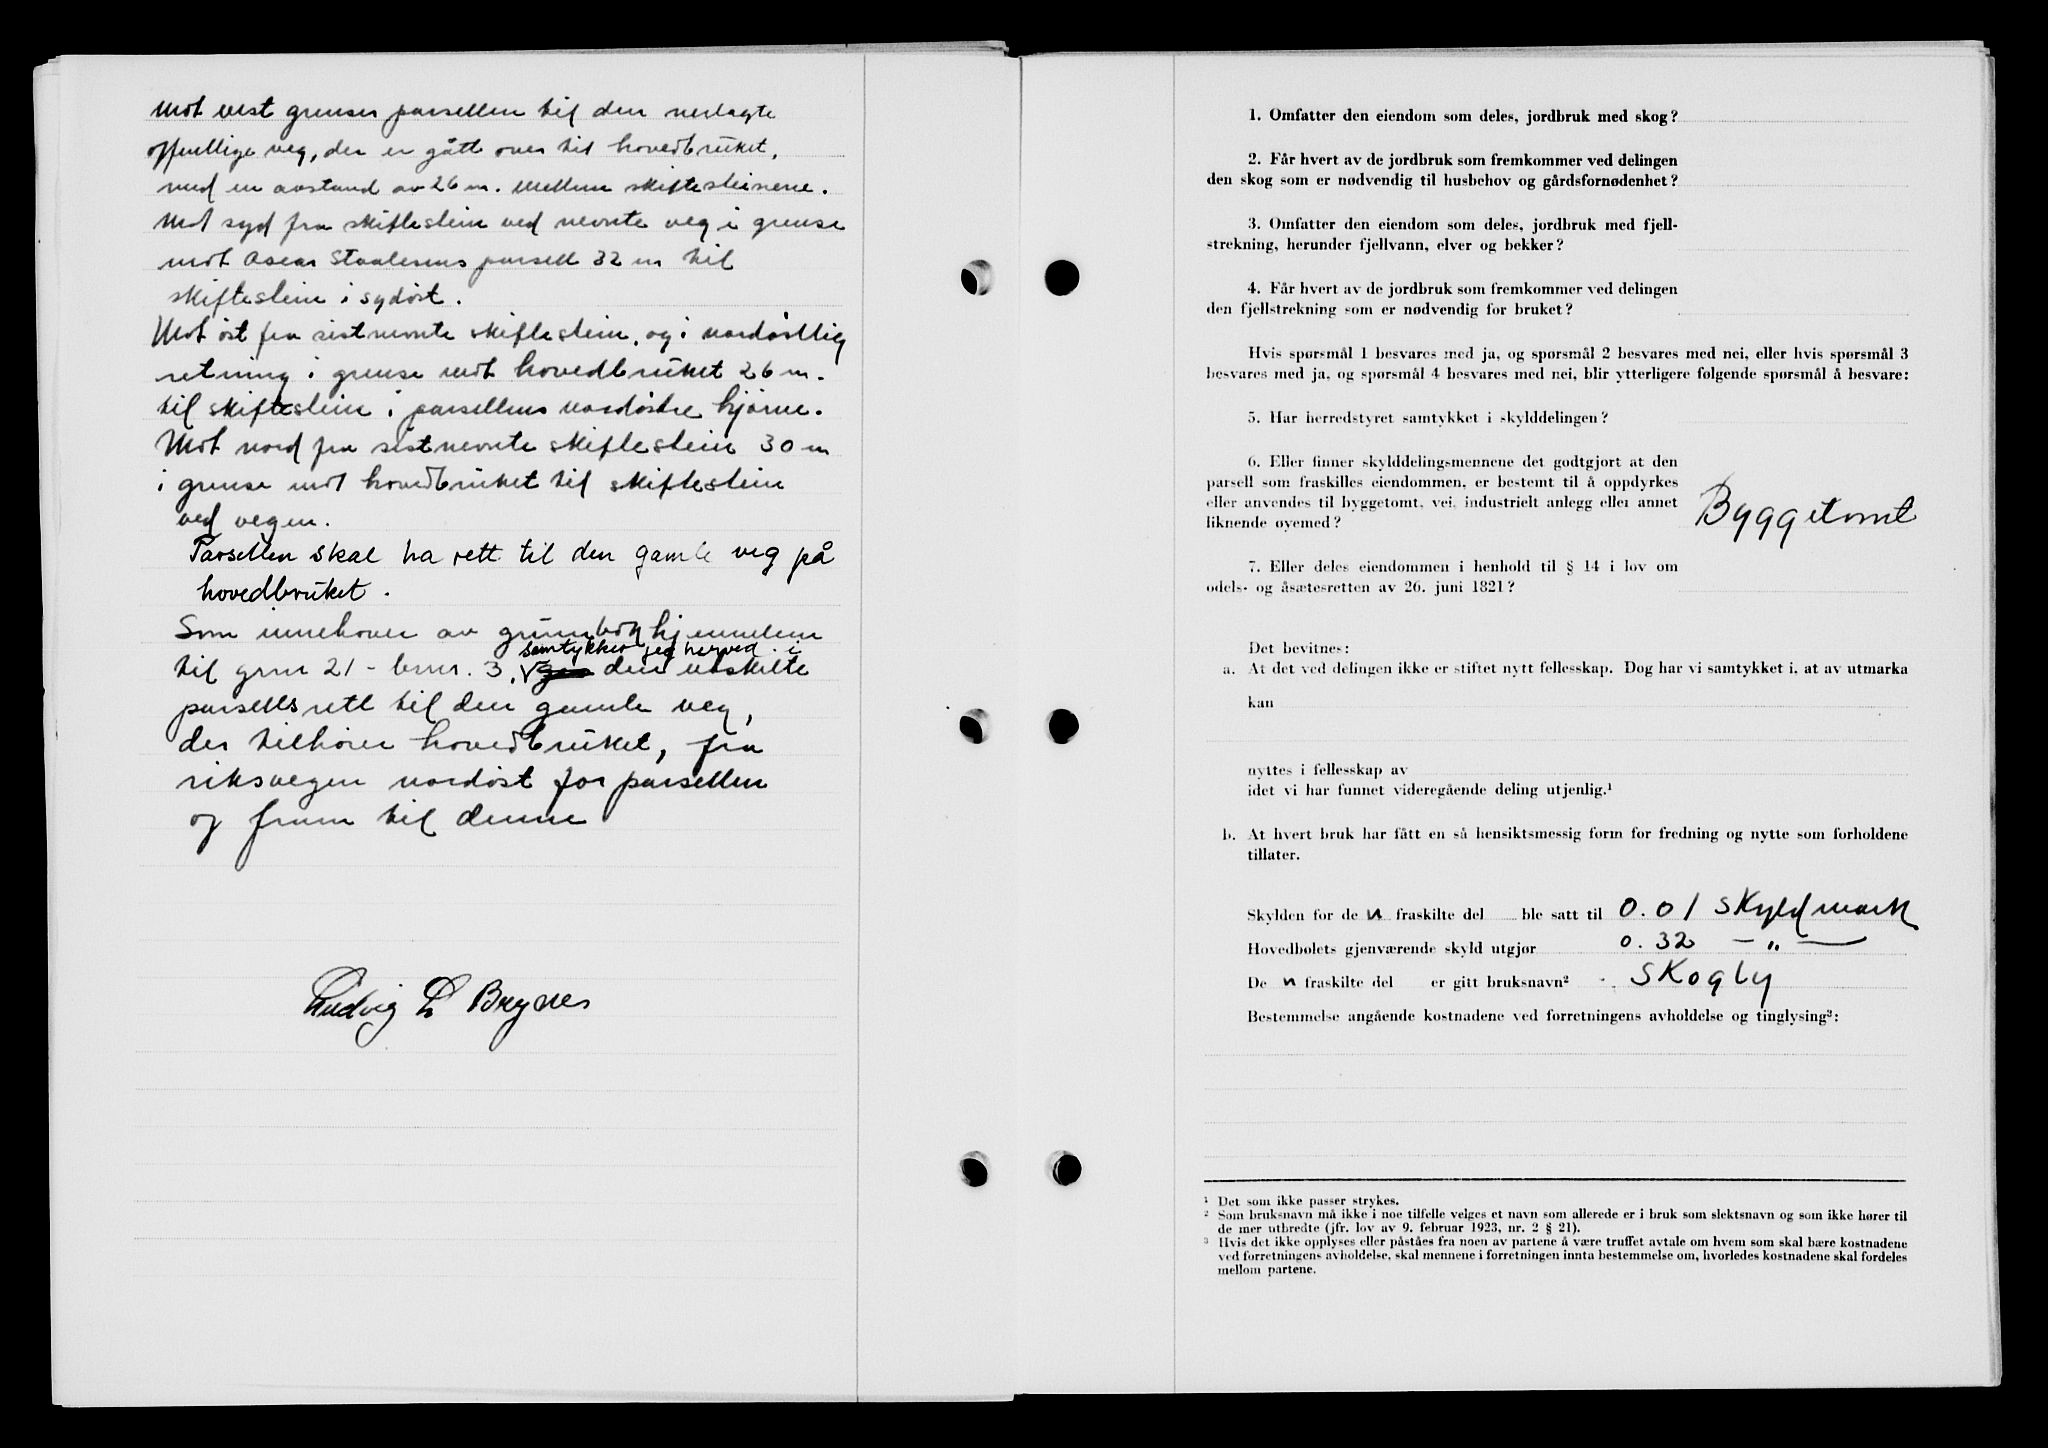 Mot vest grenser parsellen til den nerlagte
offentlige veg, der er gått over til hovedbruket,
med en avstand av 26 m. mellem skiftesteinene.
Mot syd fra skiftestein ved nevnte veg i grense
mot Oscar Staalesens parsell 32 m til
skiftestein i sydøst.
Mot øst fra sistnevnte skiftestein, og i nordøstlig
retning i grense mot hovedbruket 26 m.
til skiftestein i parsellens nordøstre hjørne.
Mot nord fra sistnevnte skiftestein 30 m
i grense mot hovedbruket til skiftestein
ved vegen.
Parsellen skal ha rett til den gamle veg på
hovedbruket.
Som innehaver av grunnbokhjemmelen
samtykker jeg herved i
til grnr 21 - brnr. 3, den utskilte
parsells rett til den gamle veg,
der tilhører hovedbruket, fra
riksvegen nordøst for parsellen
og fram til denne
Ludvig L Brynes
1. Omfatter den eiendom som deles, jordbruk med skog?
2. Får hvert av de jordbruk som fremkommer ved delingen
den skog som er nødvendig til husbehov og gårdsfornødenhet?
3. Omfatter den eiendom som deles, jordbruk med fjell-
strekning, herunder fjellvann, elver og bekker?
4. Får hvert av de jordbruk som fremkommer ved delingen
den fjellstrekning som er nødvendig for bruket?
Hvis spørsmål 1 besvares med ja, og spørsmål 2 besvares med nei, eller hvis spørsmål 3
besvares med ja, og spørsmål 4 besvares med nei, blir ytterligere følgende spørsmål å besvare:
5. Har herredstyret samtykket i skylddelingen?
6. Eller finner skylddelingsmennene det godtgjort at den
parsell som fraskilles eiendommen, er bestemt til å oppdyrkes
eller anvendes til byggetomt, vei, industrielt anlegg eller annet
liknende øyemed? Byggetomt
7. Eller deles eiendommen i henhold til § 14 i lov om
odels- og åsætesretten av 26. juni 1821?
Det bevitnes:
a. At det ved delingen ikke er stiftet nytt fellesskap. Dog har vi samtykket i, at av utmarka
kan
nyttes i fellesskap av
idet vi har funnet videregående deling utjenlig.¹
b. At hvert bruk har fått en så hensiktsmessig form for fredning og nytte som forholdene
tillater.
Skylden for de n fraskilte del ble satt til 0.01 skyldmark
Hovedbølets gjenværende skyld utgjør 0.32 — „ —
De n fraskilte del er gitt bruksnavn² Skogly
Bestemmelse angående kostnadene ved forretningens avholdelse og tinglysing³:
¹ Det som ikke passer strykes.
² Som bruksnavn må ikke i noe tilfelle velges et navn som allerede er i bruk som slektsnavn og som ikke hører til
de mer utbredte (jfr. lov av 9. februar 1923, nr. 2 § 21).
³ Hvis det ikke opplyses eller påståes fra noen av partene å være truffet avtale om hvem som skal bære kostnadene
ved forretningens avholdelse, skal mennene i forretningen innta bestemmelse om, hvorledes kostnadene skal fordeles
mellom partene.